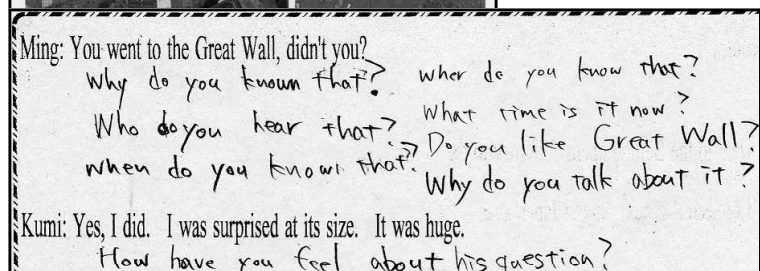 Ming: You went to the Great Wall, didn't you?
Why do you known that?
Who do you hear that?
When do you known that?
Wher do you know that?
What time is it now?
Do you like Great Wall?
Why do you talk about it?
Kumi: Yes, I did. I was surprised at its size. It was huge.
How have you feel about his question?